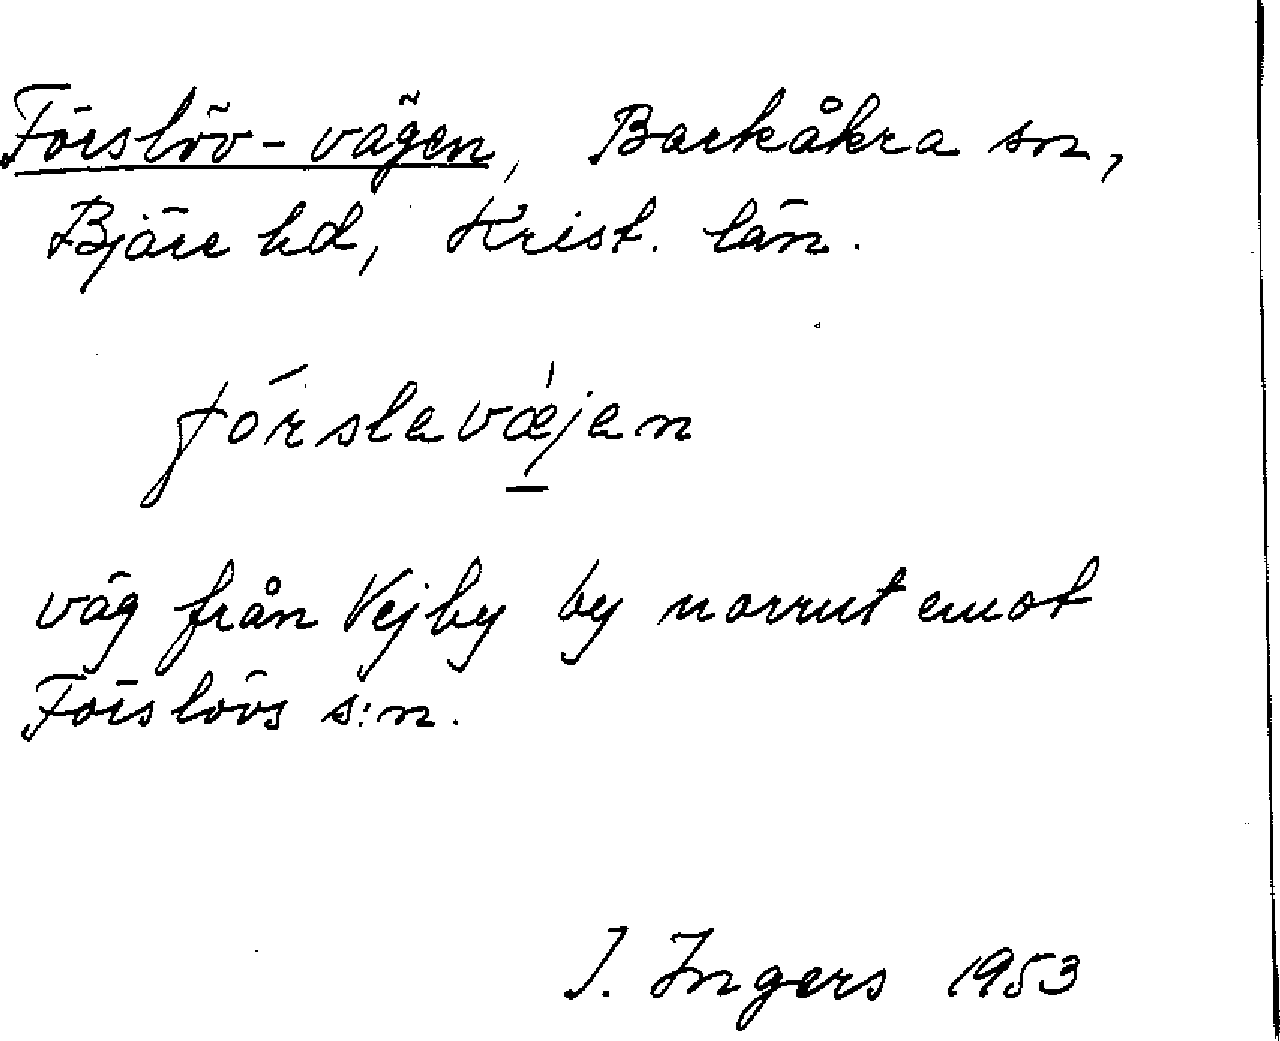 Förslöv-vägen, Barkåkra sn,
Bjäre hd, Krist. län.
fórslavæ̀jen
väg från Vejby by norrut emot
Förslövs s:n.
I. Ingers 1953